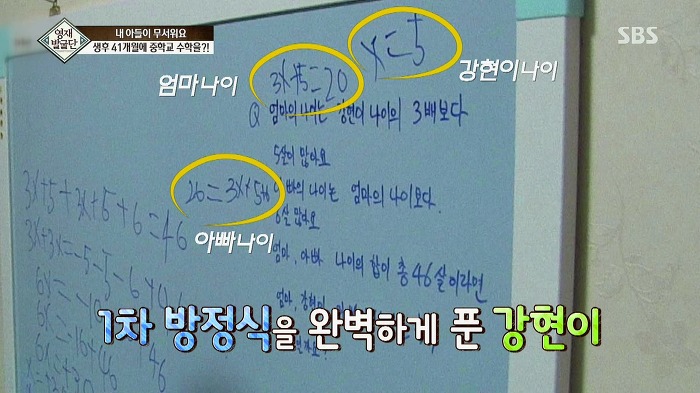 영재 발굴단
내 아들이 무서워요
생후 41개월에 중학교 수학을?!
SBS
엄마나이
3x+5=20
x=5
강현이나이
Q 엄마의 나이는 강현이 나이의 3배보다
5살이 많아요
26=3x+5+6
아빠나이
아빠의 나이는 엄마의 나이보다
6살 많아요
엄마, 아빠 나이의 합이 총 46살이라면
엄마, 강현이
3x+5+3x+5+6=46
3x+3x=-5-5-6+46
6x=-16
6x=-16+46
46
1차 방정식을 완벽하게 푼 강현이